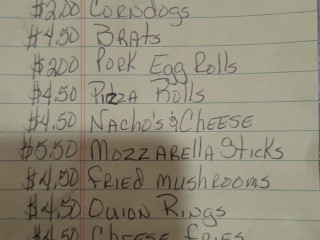 $2.00 Corndogs
$4.50 Brats
$2.00 Pork Egg Rolls
$4.50 Pizza Rolls
$4.50 Nacho's & Cheese
$5.50 Mozzarella Sticks
$4.50 Fried Mushrooms
$4.50 Onion Rings
$4.50 Cheese Fries